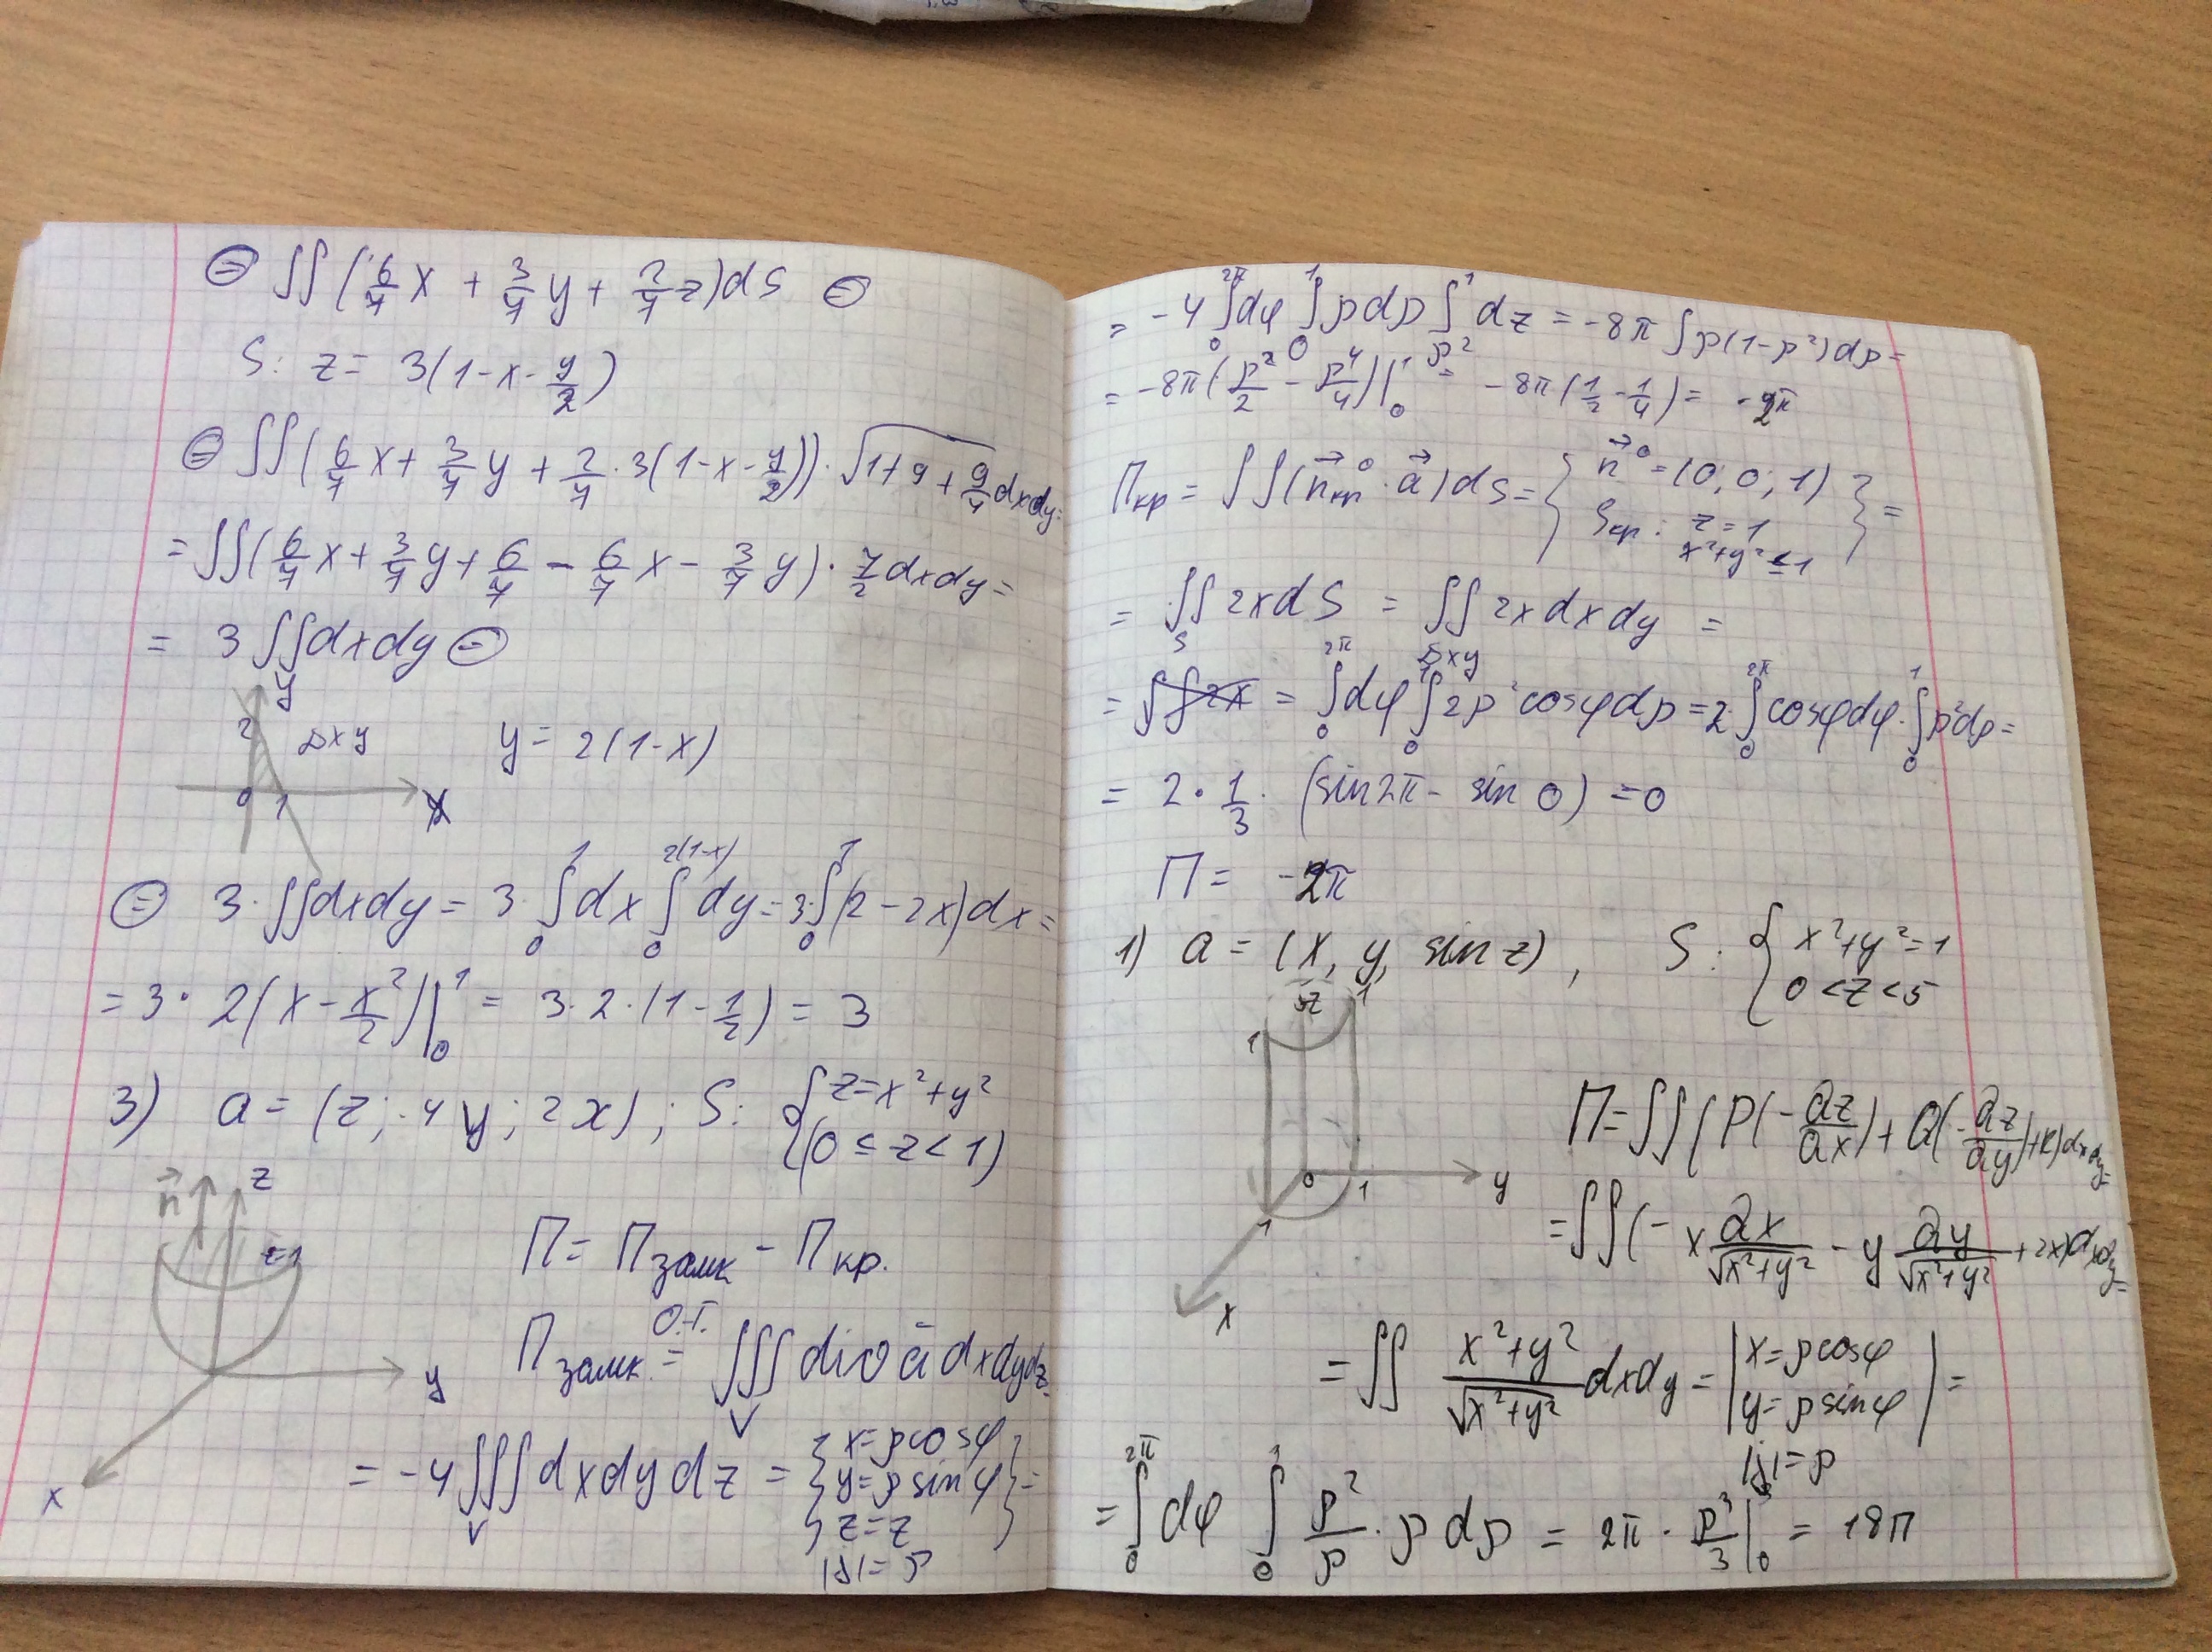 ⊜ ∬(6/7 x + 3/7 y + 2/7 z)dS ⊜
S: z = 3(1-x-y/2)
⊜ ∬(6/7 x + 3/7 y + 2/7 · 3(1-x-y/2)) · √(1+9+9/4) dxdy =
= ∬(6/7 x + 3/7 y + 6/7 - 6/7 x - 3/7 y) · 7/2 dxdy =
= 3∬dxdy ⊜
y
2
Dxy
y = 2(1-x)
0 1 x
⊜ 3·∬dxdy = 3·∫₀¹dx ∫₀^{2(1-x)} dy = 3·∫₀¹(2-2x)dx =
= 3·2(x - x²/2)|₀¹ = 3·2·(1-1/2) = 3
3) a = (z; -4y; 2x); S: { z=x²+y²
(0 ≤ z < 1)
n⃗ z
z=1
y
x
П = Пзамк - Пкр.
Пзамк О.-Г. = ∭_V div ā dxdydz =
= -4∭_V dxdydz = { x=ρcosφ
y=ρsinφ
z=z } =
|J|=ρ
= -4∫₀^{2π}dφ ∫₀¹ρdρ ∫_{ρ²}^1 dz = -8π∫ρ(1-ρ²)dρ =
= -8π(ρ²/2 - ρ⁴/4)|₀¹ = -8π(1/2-1/4) = -2π
Пкр = ∬(n⃗⁰кр · a⃗)dS = { n⃗⁰=(0; 0; 1)
Sкр: z=1
x²+y²≤1 } =
= ∬_S 2xdS = ∬_{Dxy} 2xdxdy =
= = ∫₀^{2π}dφ ∫₀¹ 2ρ²cosφdρ = 2·∫₀^{2π}cosφdφ·∫₀¹ρ²dρ =
= 2·1/3·(sin2π - sin 0) = 0
П = -2π
1) a = (x, y, sin z), S: { x²+y²=1
0<z<5
z
1
1
0 1 y
1
x
П = ∬(P(-∂z/∂x) + Q(-∂z/∂y)+R)dxdy =
= ∬(-x ∂x/√(x²+y²) - y ∂y/√(x²+y²) + 2x)dxdy =
= ∬ (x²+y²)/√(x²+y²) dxdy = | x=ρcosφ
y=ρsinφ | =
|J|=ρ
= ∫₀^{2π}dφ ∫₀³ ρ²/ρ · ρdρ = 2π · ρ³/3|₀³ = 18π